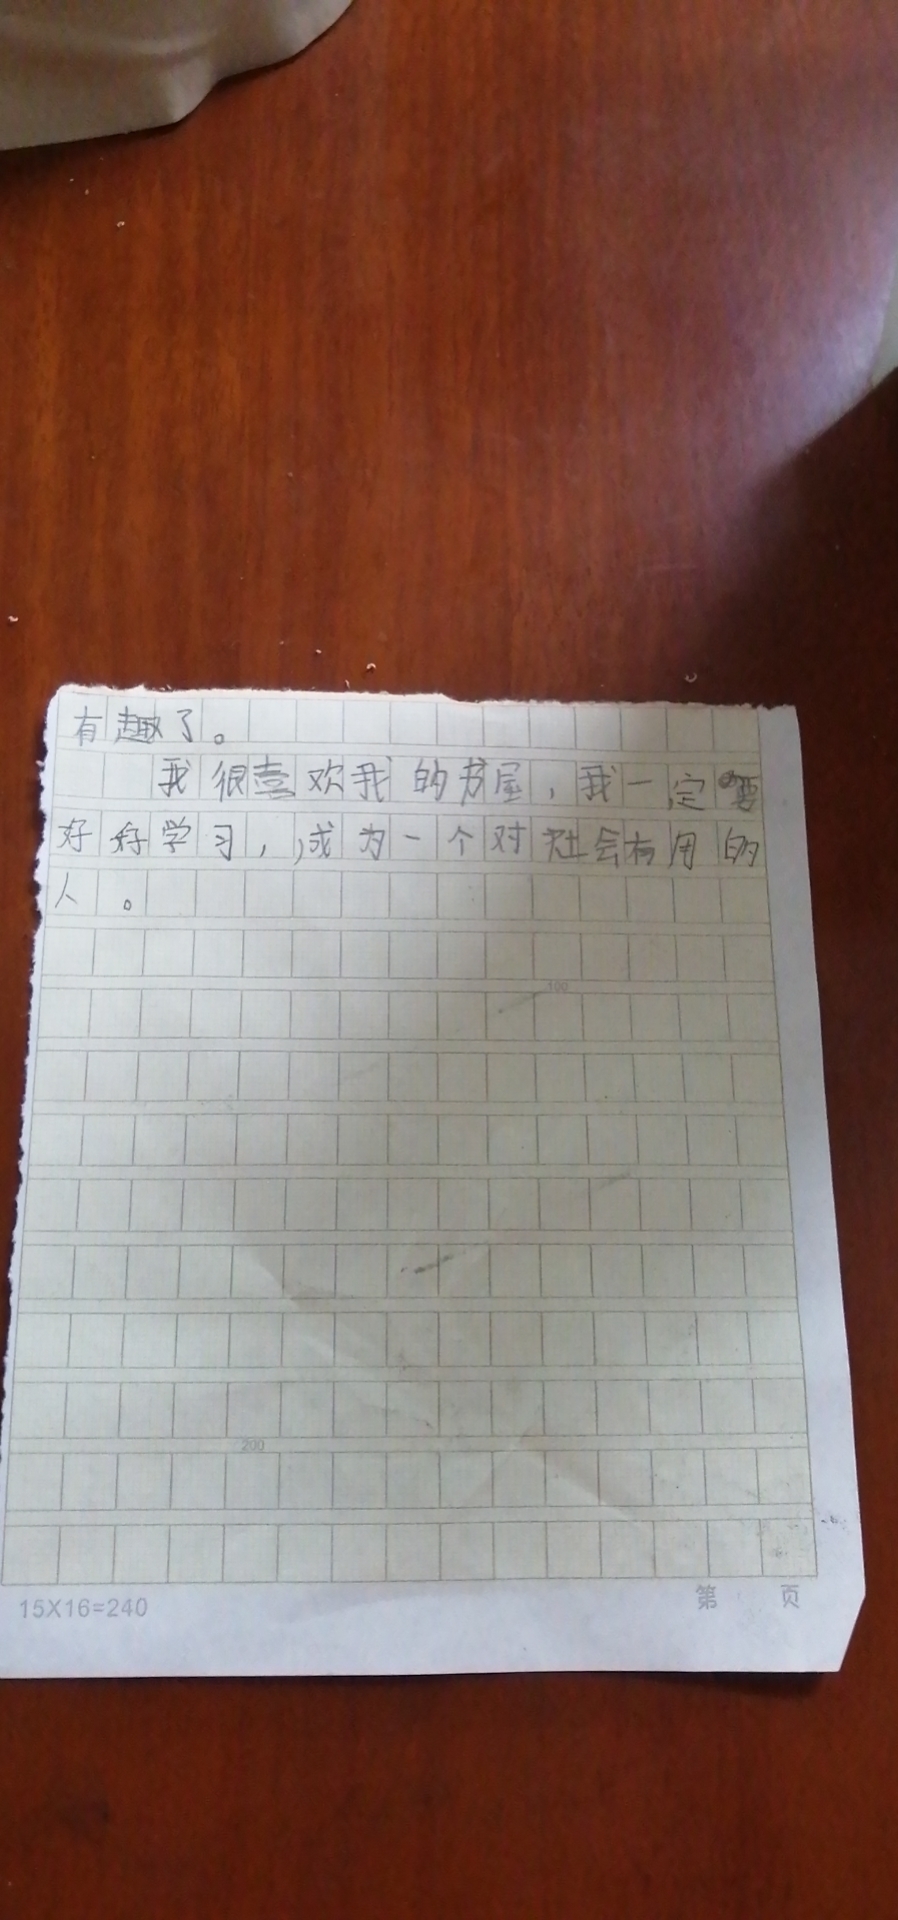 有趣了。
我很喜欢我的书屋，我一定要
好好学习，成为一个对社会有用的
人。
100
200
15X16=240
第 页